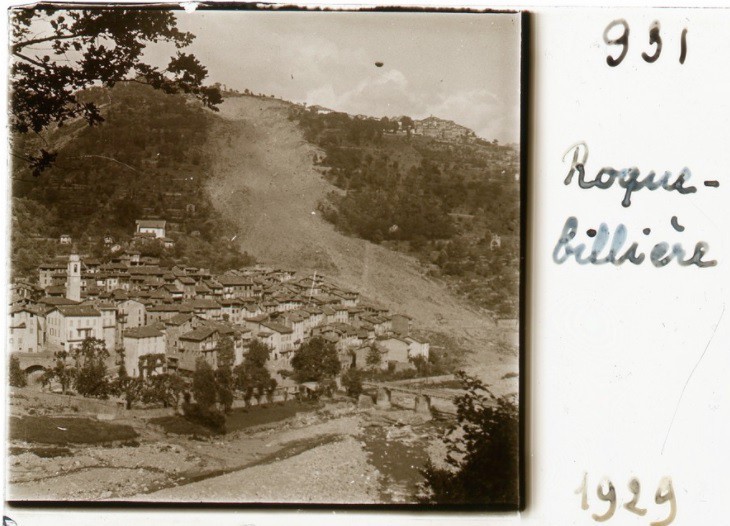 931
Roque-
billière
1929